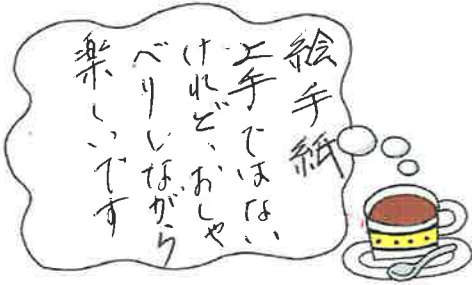 絵手紙
上手ではない
けれど、おしゃ
べりしながら
楽しいです